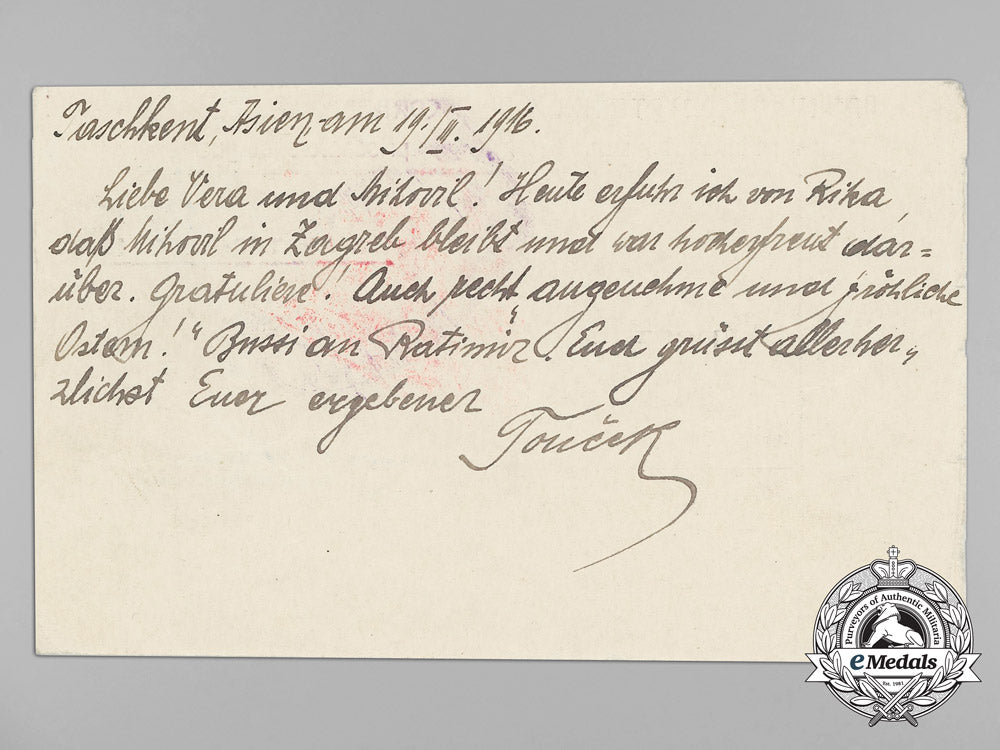 Taschkent, Asien am 19./III. 1916.
Liebe Vera und Mihovil! Heute erfuhr ich von Rika,
daß Mihovil in Zagreb bleibt und war hocherfreut dar=
über. Gratuliere! Auch recht angenehme und fröhliche
Ostern! "Bussi an Ratimir". Euch grüsst allerher„
zlichst Euer ergebener
Touček
Purveyors of Authentic Militaria
eMedals
Est. 1981